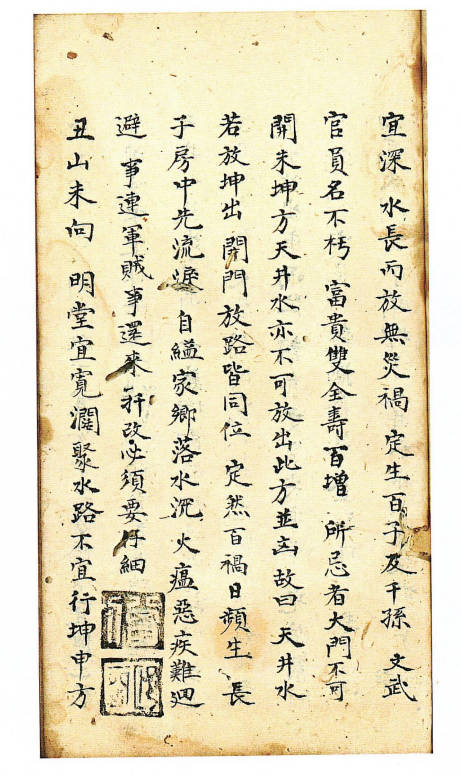 宜深 水長而放無災禍 定生百子及千孫 文武
官員名不朽 富貴雙全壽百增 所忌者大門不可
開未坤方天井水亦不可放出此方並凶故曰 天井水
若放坤出 開門放路皆同位 定然百禍日頻生 長
子房中先流淚 自縊家鄉落水沉 火瘟惡疾難迴
避 事連軍賊事還來 扦改必須要仔細
丑山未向 明堂宜寬濶聚水路不宜行坤申方